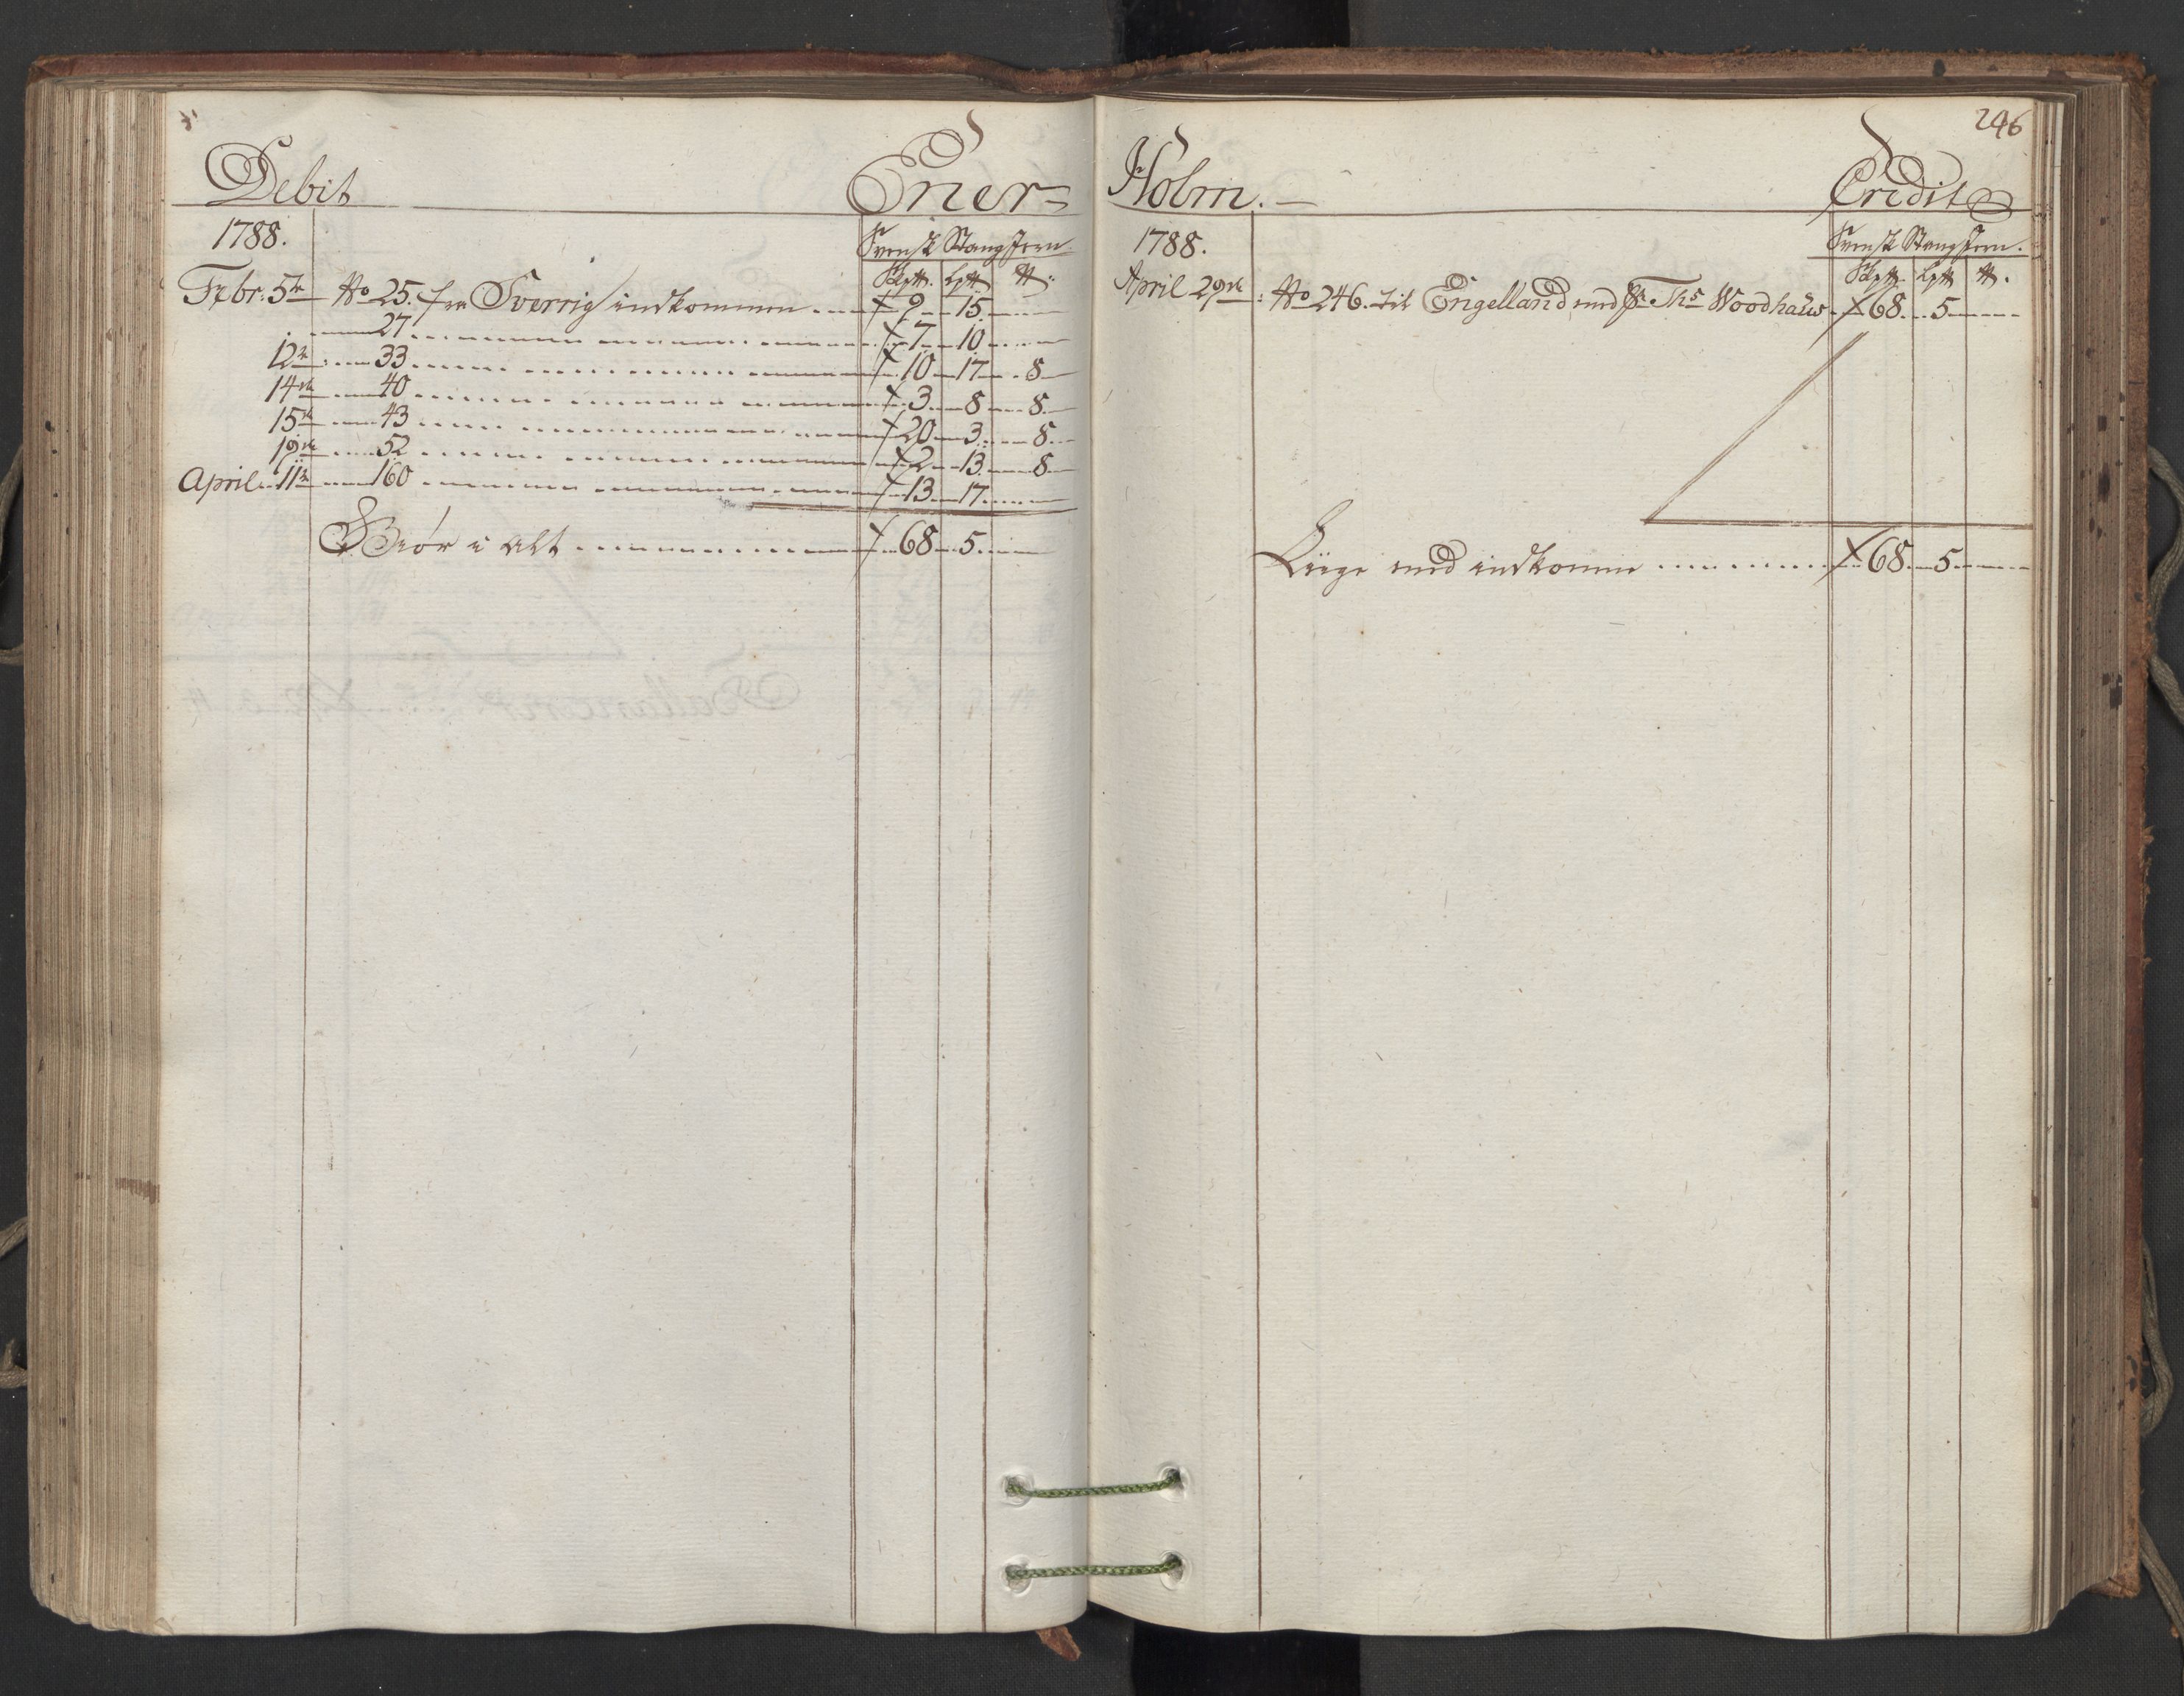 Debit Ener=
1788.
Svensk Stang Jern
Skp℔. Lp℔ ℔:
Febr: 5te No 25. fra Sverrig indkommen .... 9 15
27 ... 7 10
12te 33 ... 10 17 8
14de 40 ... 3 8 8
15de 43 ... 20 3 8
19de 52 ... 2 13 8
April 11te 160 ... 13 17
Giør i alt ... 68 5
246
Holm. Credit
1788.
Svensk Stang Jern.
Skp℔. Lp℔ ℔.
April 29de: No 246. til Engelland med Sr. Ths Woodhaus 68 5
Liige med indkomne ... 68 5